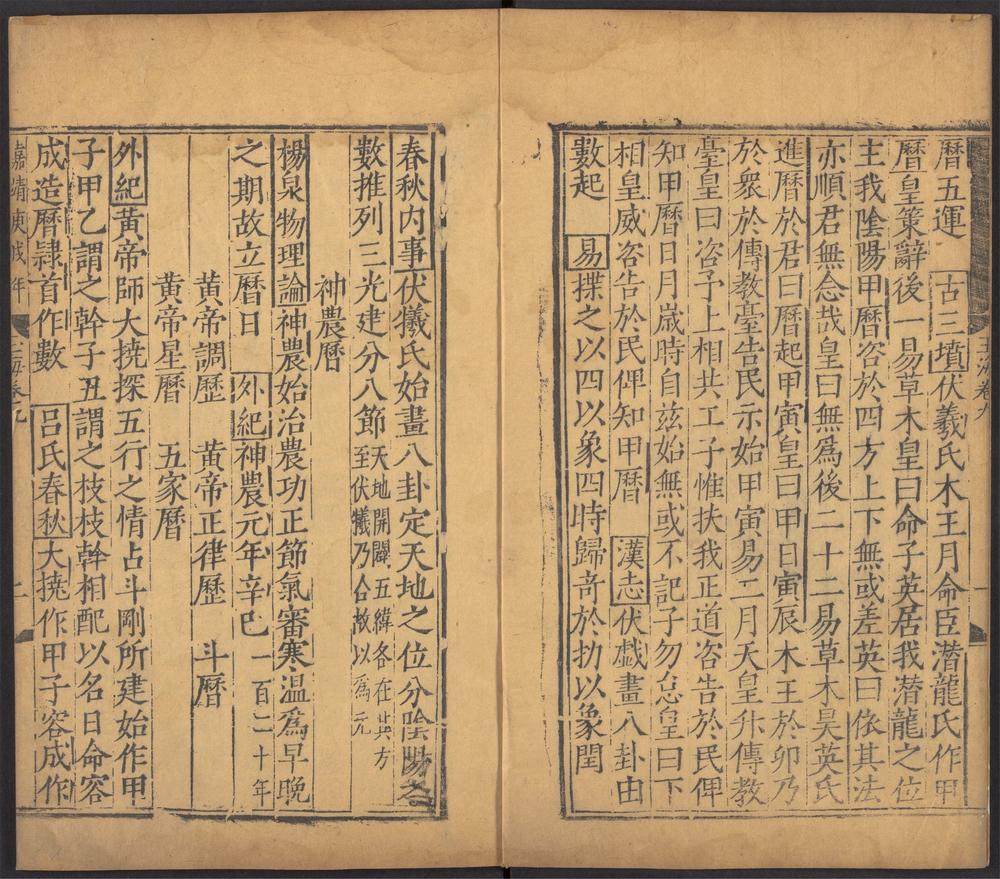 玉海卷九
曆五運 古三墳伏羲氏木王月命臣潛龍氏作甲
曆皇策辭後一易草木皇曰命子英居我潛龍之位
主我陰陽甲曆咨於四方上下無或差英曰依其法
亦順君無念哉皇曰無為後二十二易草木昊英氏
進曆於君曰曆起甲寅皇曰甲日寅辰木王於卯乃
於衆於傳教臺告民示始甲寅易二月天皇升傳教
臺皇曰咨子上相共工子惟扶我正道咨告於民俾
知甲曆日月歲時自茲始無或不記子勿怠皇曰下
相皇威咨告於民俾知甲曆 漢志伏戲畫八卦由
數起 易揲之以四以象四時歸奇於扐以象閏
春秋內事伏犧氏始畫八卦定天地之位分陰陽之
數推列三光建分八節天地開闢五緯各在其方
至伏犧乃合故以爲元
神農曆
楊泉物理論神農始治農功正節氣審寒溫爲早晚
之期故立曆日 外紀神農元年辛巳一百二十年
黃帝調歷 黃帝正律歷 斗曆
黃帝星曆 五家曆
外紀黃帝師大撓探五行之情占斗剛所建始作甲
子甲乙謂之幹子丑謂之枝枝幹相配以名日命容
成造曆隷首作數 呂氏春秋大撓作甲子容成作
嘉靖庚戌年 玉海卷九 二